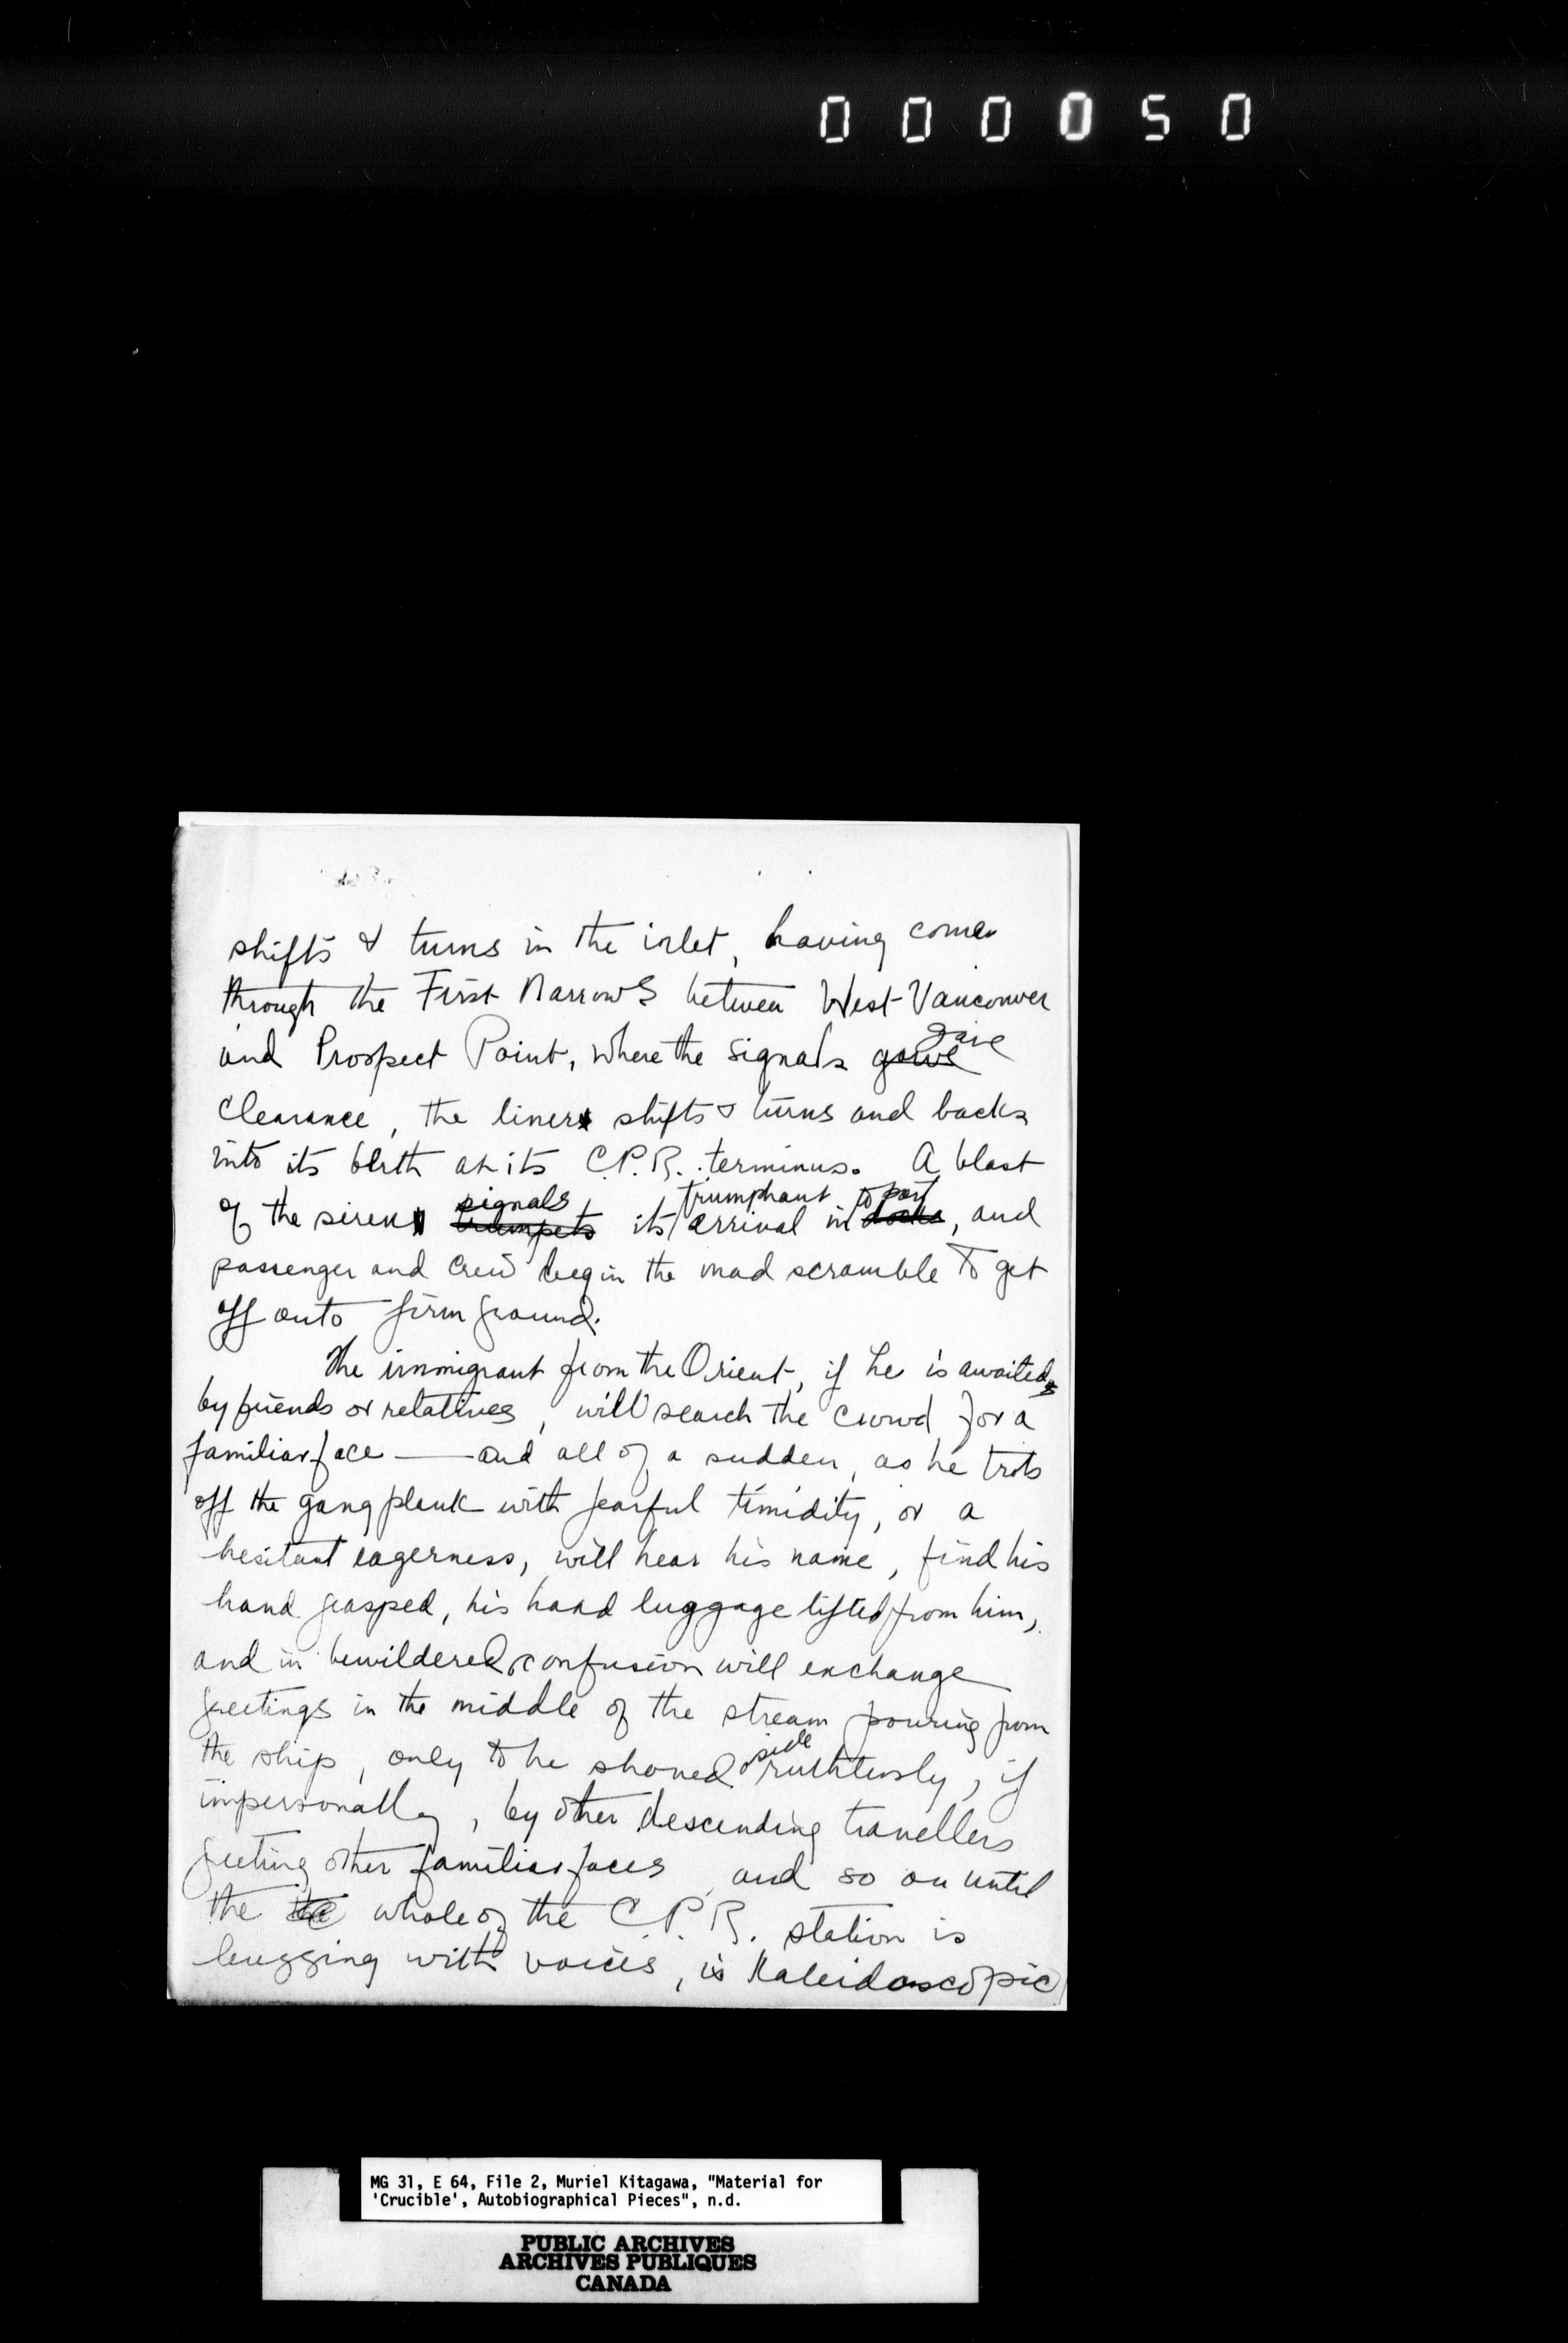 000050
shifts & turns in the inlet, having come
through the First Narrows between West Vancouver
and Prospect Point, where the signals gave
clearance, the liner shifts & turns and backs
into its berth at its C.P.R. terminus. A blast
of the siren signals its triumphant arrival in to port, and
passenger and crew begin the mad scramble to get
off onto firm ground.
The immigrant from the Orient, if he is awaited
by friends or relatives, will search the crowd for a
familiar face — and all of a sudden, as he trots
off the gangplank with fearful timidity, or a
hesitant eagerness, will hear his name, find his
hand grasped, his hand luggage lifted from him,
and in bewildered confusion will exchange
greetings in the middle of the stream pouring from
the ship, only to be shoved aside ruthlessly, if
impersonally, by other descending travellers
greeting other familiar faces, and so on until
the whole of the C.P.R. station is
buzzing with voices, is kaleidoscopic
MG 31, E 64, File 2, Muriel Kitagawa, "Material for
'Crucible', Autobiographical Pieces", n.d.
PUBLIC ARCHIVES
ARCHIVES PUBLIQUES
CANADA